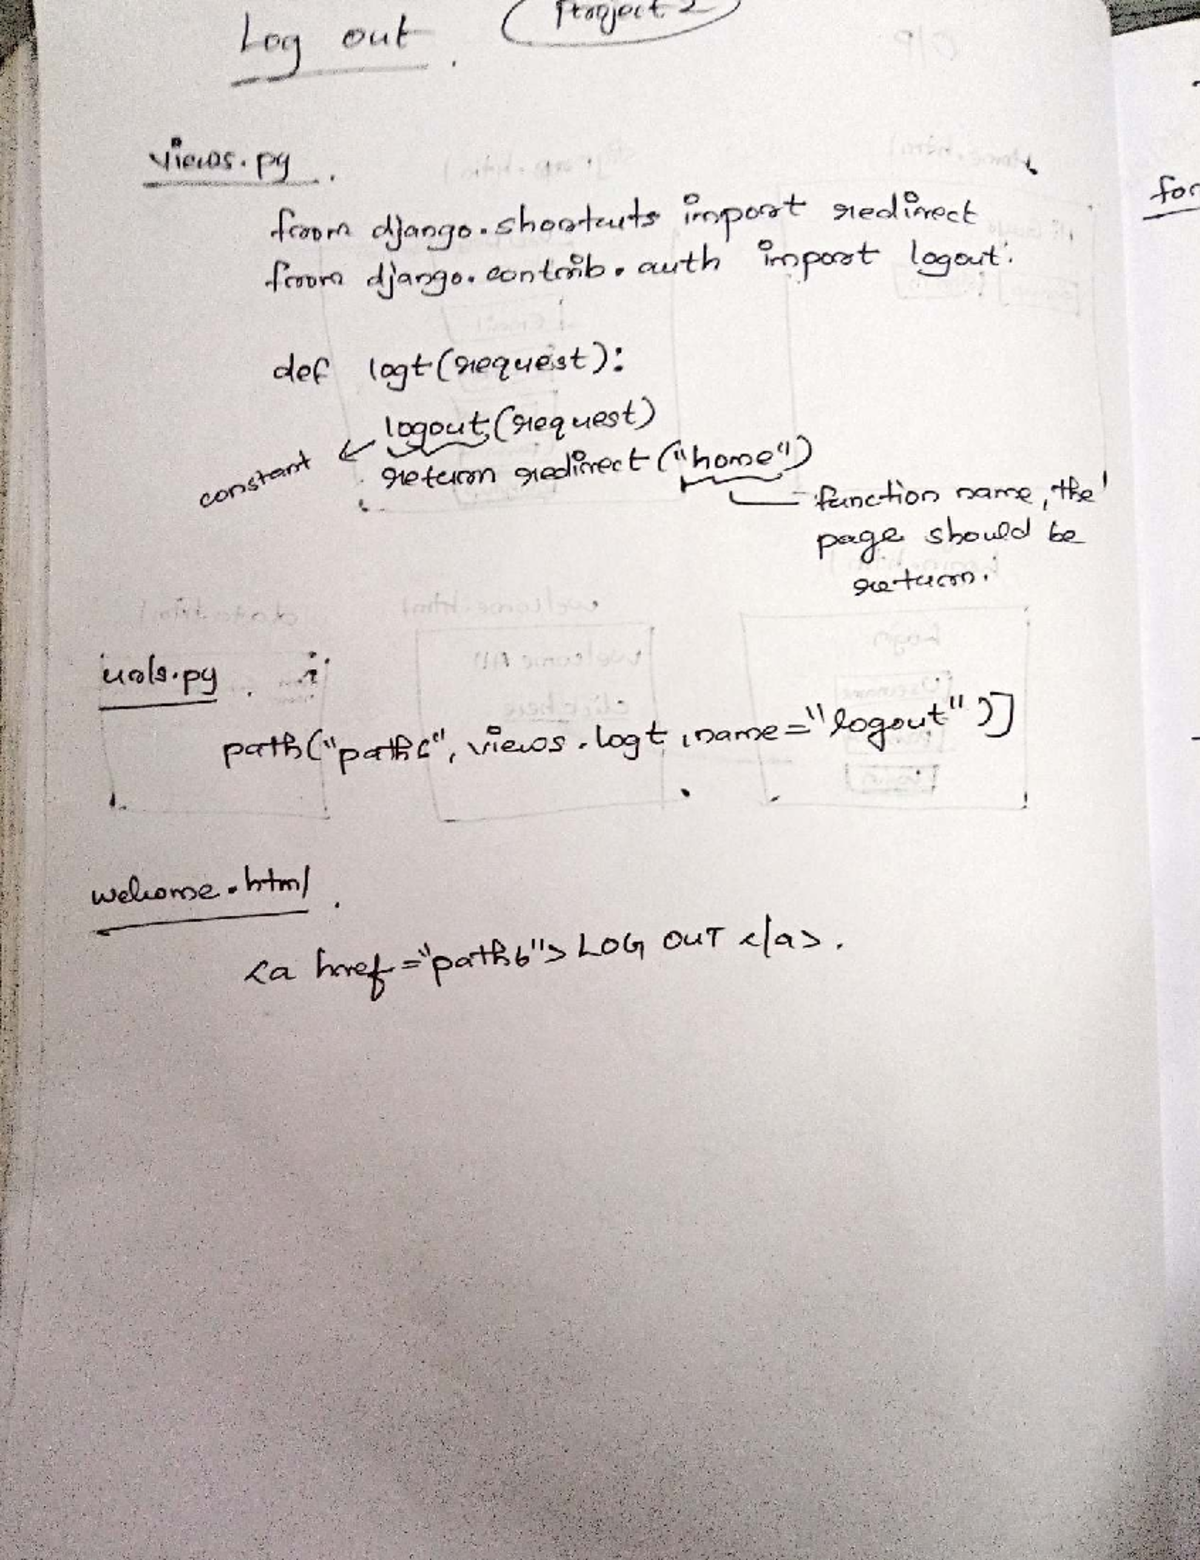 Log out. Project 2
views.py.
from django.shortcuts import redirect
from django.contrib.auth import logout.
def logt(request):
logout(request)
constant
return redirect("home")
function name, the
page should be
return.
urls.py.
path("path6", views.logt, name="logout")]
welcome.html.
<a href="path6"> LOG OUT </a>.
for